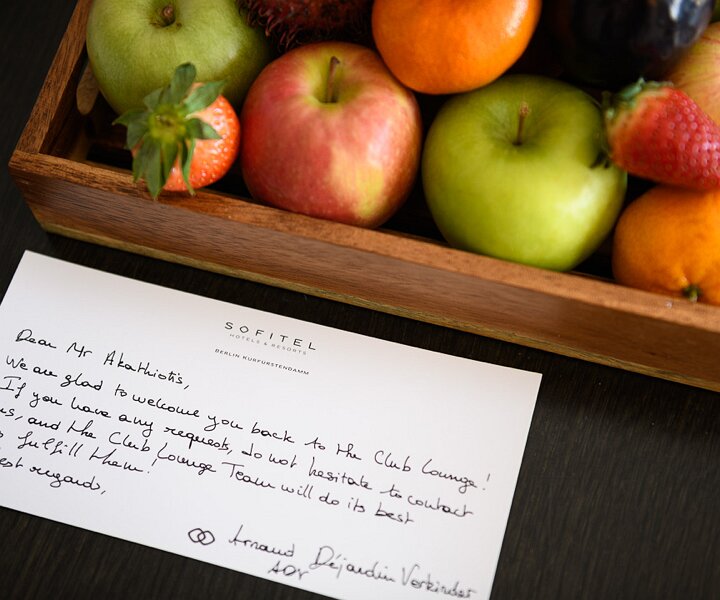 SOFITEL
HOTELS & RESORTS
BERLIN KURFÜRSTENDAMM
Dear Mr Akathiotis,
We are glad to welcome you back to the Club Lounge!
If you have any requests, do not hesitate to contact
us, and the Club Lounge Team will do its best
fulfill them!
est regards,
Arnaud Déjardin Verkinder